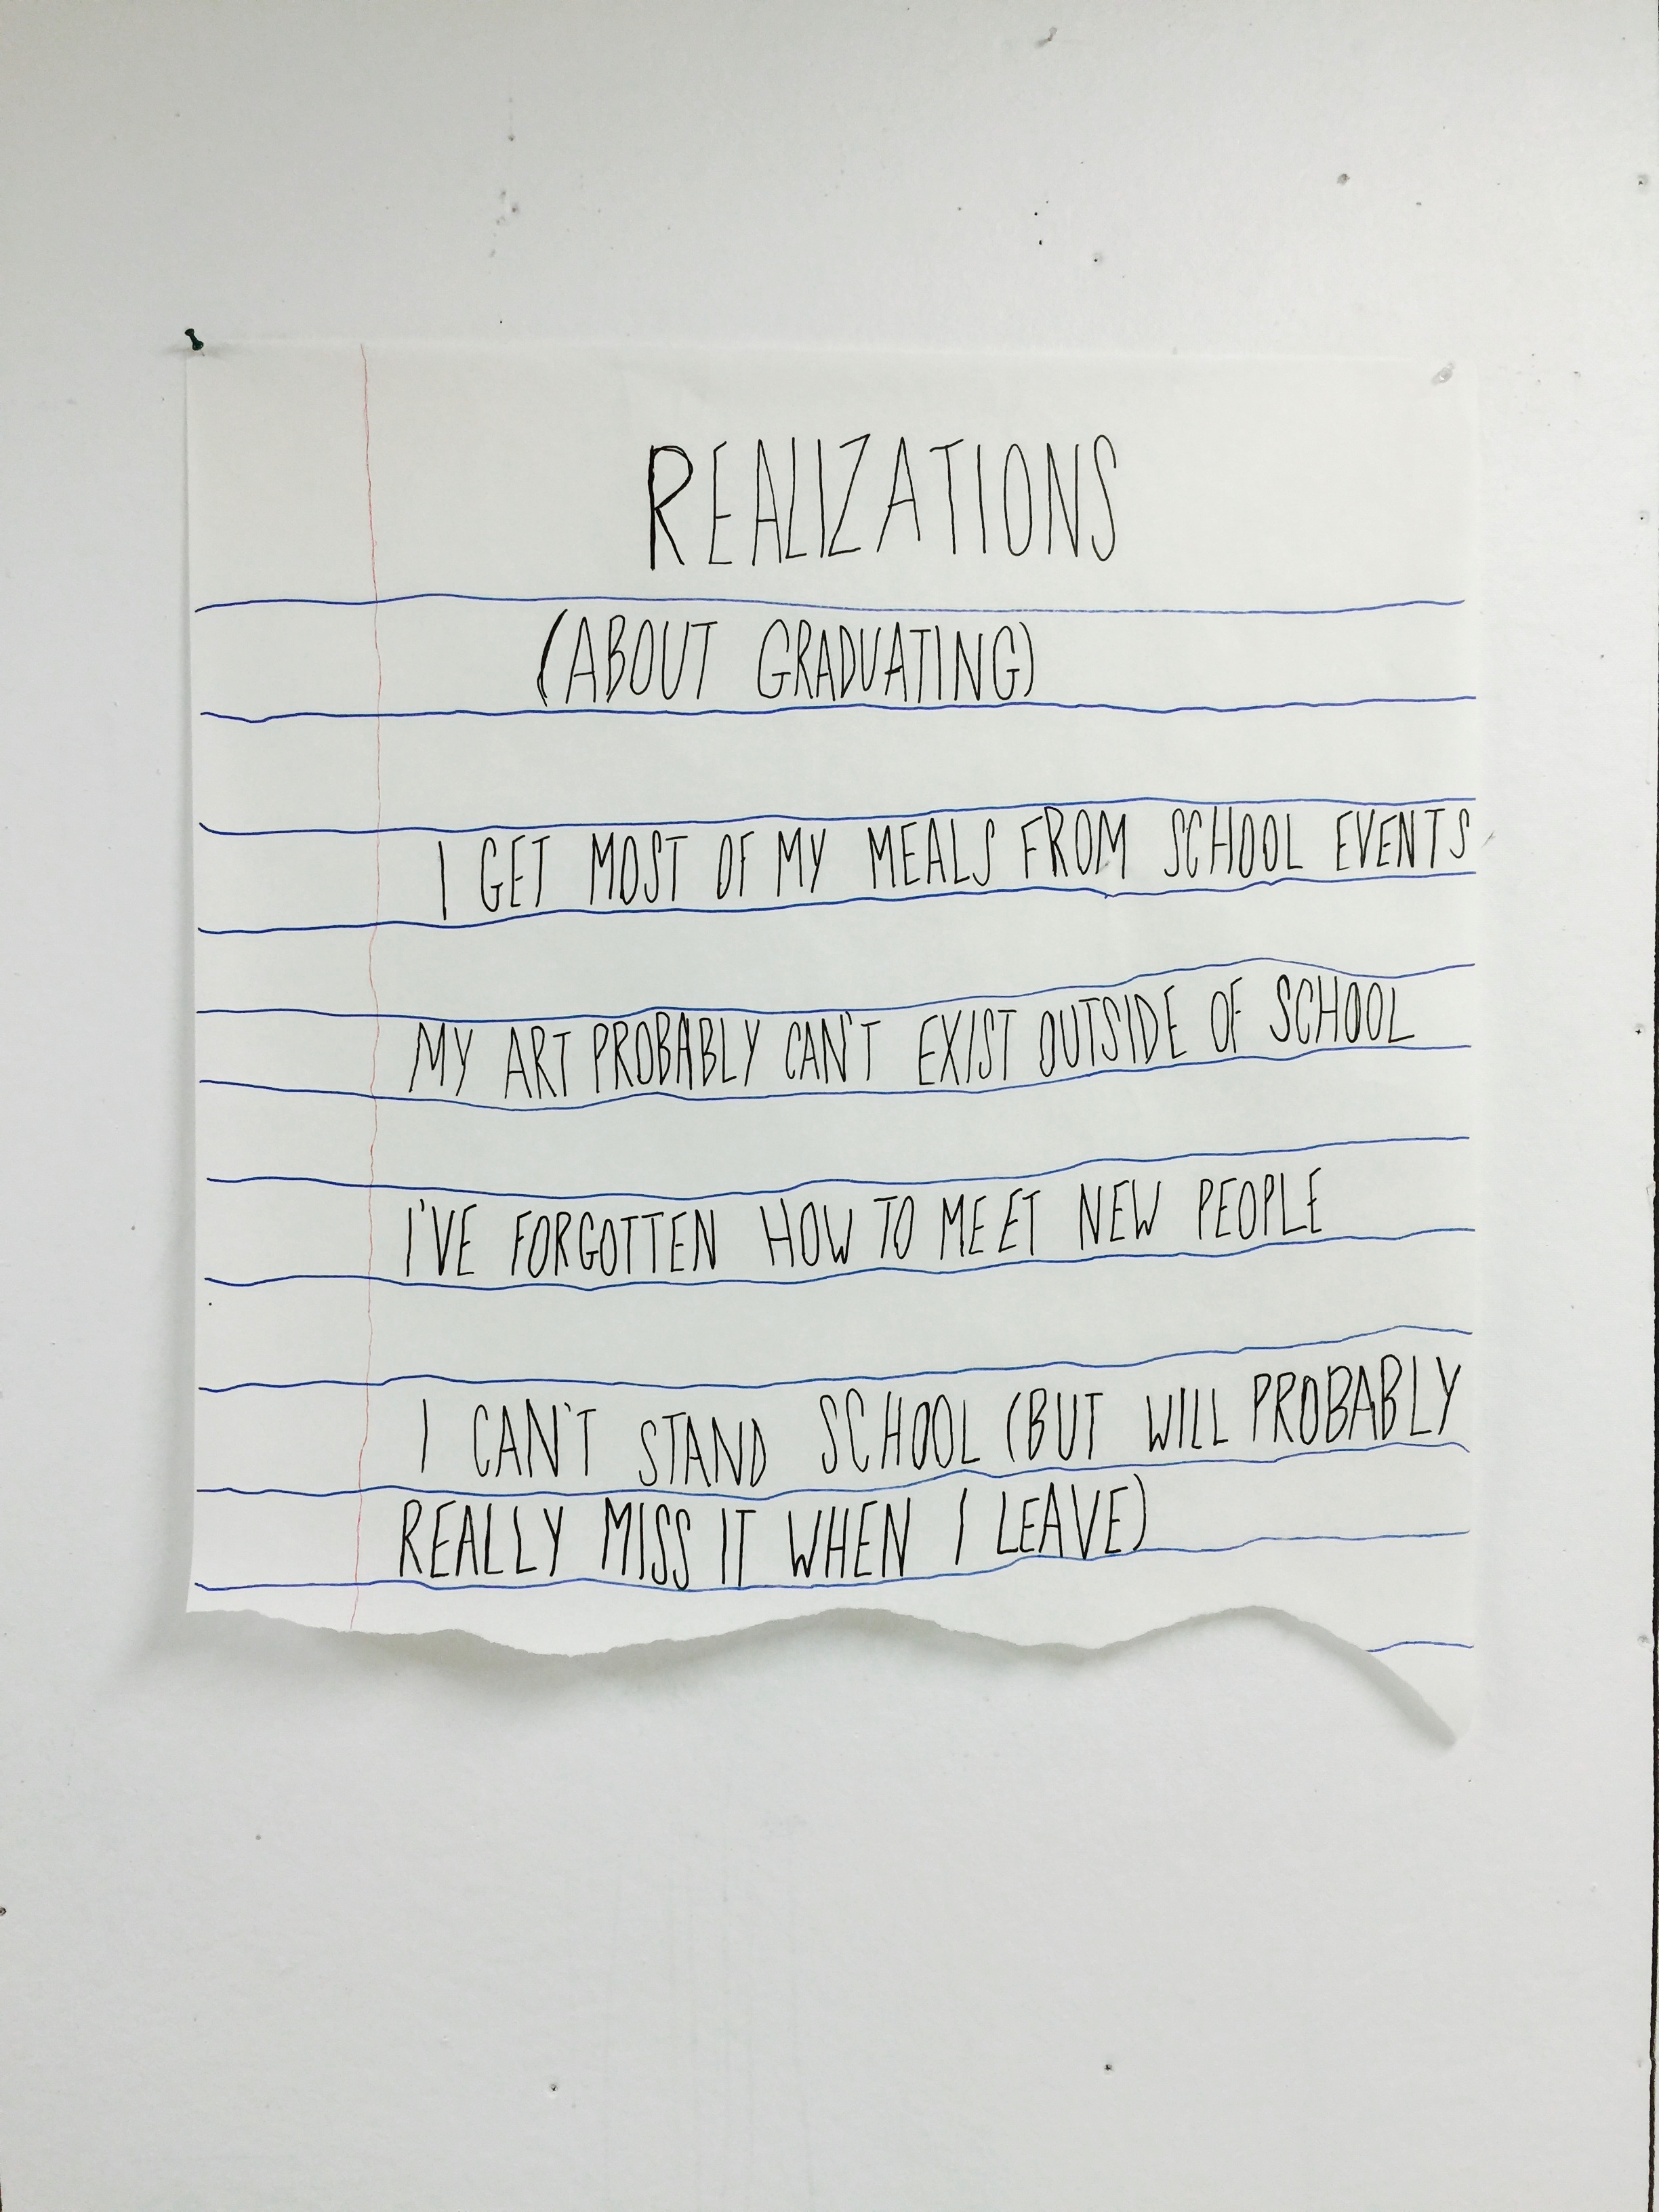 REALIZATIONS
(ABOUT GRADUATING)
I GET MOST OF MY MEALS FROM SCHOOL EVENTS
MY ART PROBABLY CAN'T EXIST OUTSIDE OF SCHOOL
I'VE FORGOTTEN HOW TO MEET NEW PEOPLE
I CAN'T STAND SCHOOL (BUT WILL PROBABLY
REALLY MISS IT WHEN I LEAVE)